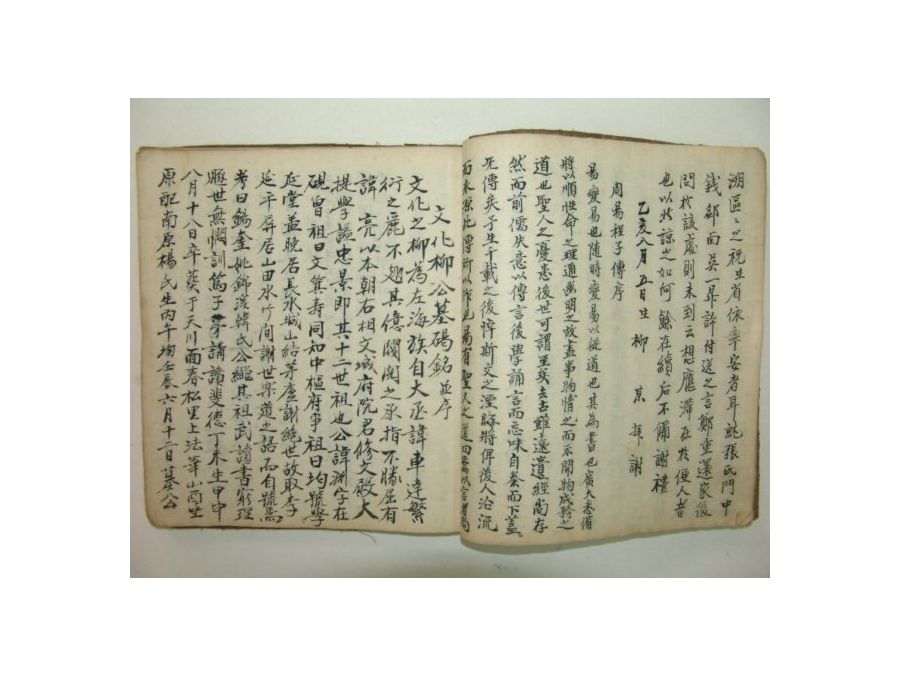 溯區〻之祝生省依率安者耳就張氏門中
錢郤面吳一昇許付送之言鄭重還家後
問於該處則未到云想應滯在於便人者
也以此諒之如何餘在續后不備謝禮
乙亥八月五日生柳 拜謝
周易程子傳序
易變易也隨時變易以從道也其為書也廣大悉備
將以順性命之理通幽明之故盡事物情之而示開物成務之
道也聖人之憂患後世可謂至矣去古雖遠遺經尚存
然而前儒失意以傳言後學誦言而忘味自秦而下蓋
死傳矣予生千載之後悼斯文之湮晦將俾後人沿流
而求源此傳所以作也易有聖人之道四焉以言者尚
文化柳公墓碣銘並序
文化之柳為左海族自大丞諱車達繁
衍之麗不翅其億閥閱之承指不勝屈有
諱亮以本朝右相文城府院君修文殿大
提學謚忠景即其十二世祖也公諱淵字在
硯曾祖曰文箕壽同知中樞府事祖曰均號學
庭堂孟晚居長水城山結茅廬謝絶世故取李
延平屏居山田水竹間謝世樂道之語而自號焉
考曰鎬奎妣錦溪韓氏公繼其祖武讀書窮理
遯世無憫訓篤子弟講讀斐德丁未生甲申
八月十八日卒葬于天川面春松里上法華山酉坐
原配南原楊氏生丙午均壬辰六月十二日墓公